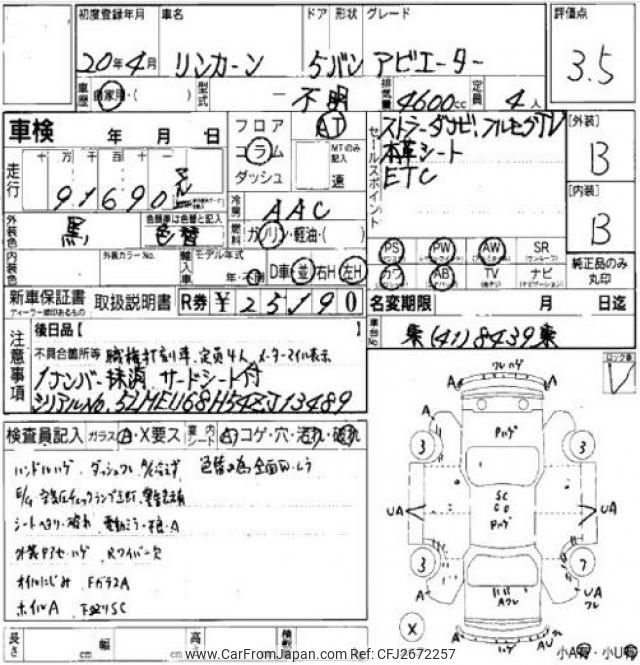 初度登録年月 車名 ドア 形状 グレード 評価点
20年4月 リンカーン 5 バン アビエーター 3.5
車歴 自家用・( ) 型式 不明 排気量 4600cc 定員 4人
車検 年 月 日 フロア AT
コラム MTのみ記入
ダッシュ 速
セールスポイント
ストラーダナビ、フルセグTV
本革シート
ETC
[外装]
B
[内装]
B
走行 十万千百十一
91690
冷房 AAC
外装色 黒 色替車は色替と記入 色替
燃料 ガソリン・軽油・( )
内装色 外装カラーNo. 輸入車 モデル年式 年・不明 D車・並 右H・左H
PS PW AW SR
カワ AB TV ナビ
純正品のみ丸印
新車保証書 取扱説明書 R券 ¥25190
ディーラー印があるもの
名変期限 月 日迄
後日品【 】
車台No. 集(41)8439集
注意事項
不具合箇所等 職権打刻車、定員4人 メーターマイル表示
1ナンバー抹消 サードシート付
シリアルNo. 5LMEU68H54ZJ13489
ロック車
検査員記入 ガラス A・X要ス 室内 シート A コゲ・穴・汚れ・破れ
ハンドルハゲ
色替の為全面W
シートヘタリ・破れ 電動ミラー不良・A
Rワイパー欠
オイルにじみ FガラスA
ホイルA 下廻りSC
フレ ハゲ
A A
3 3
Pハゲ
SC
Pハゲ
UA UA
3 7
A Aフレ UA フレ
X
A ハゲ AU
小A・小U
長さ cm 幅 cm 高さ
www.CarFromJapan.com Ref: CFJ2672257